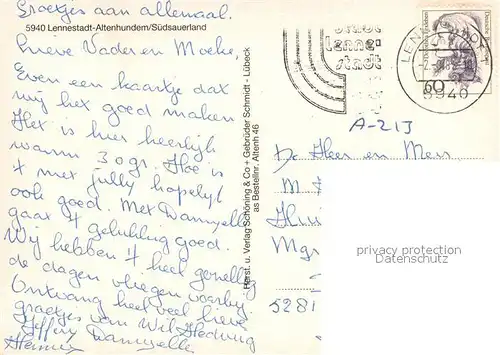 Groetjes aan allemaal.
5940 Lennestadt-Altenhundem/Südsauerland
Lieve Vader en Moeke,
Even een kaartje dat
wij het goed maken
Het is hier heerlijk
warm 30 gr. Hoe is
't met jullie hopelijk
ook goed. Met Dannyelle
gaat 't gelukkig goed.
Wij hebben 't heel gezellig
de dagen vliegen voorbij.
Ontvang heel veel lieve
groetjes van Wil Hedwig
Jeffrey Dannyelle
Herst. u. Verlag Schöning & Co + Gebrüder Schmidt - Lübeck
as Bestellnr. Altenh 46
Stadt
Lenne-
stadt
LENN
60
5940
A-213
De Heer en Mevr
M
Mgr
5281
privacy protection
Datenschutz